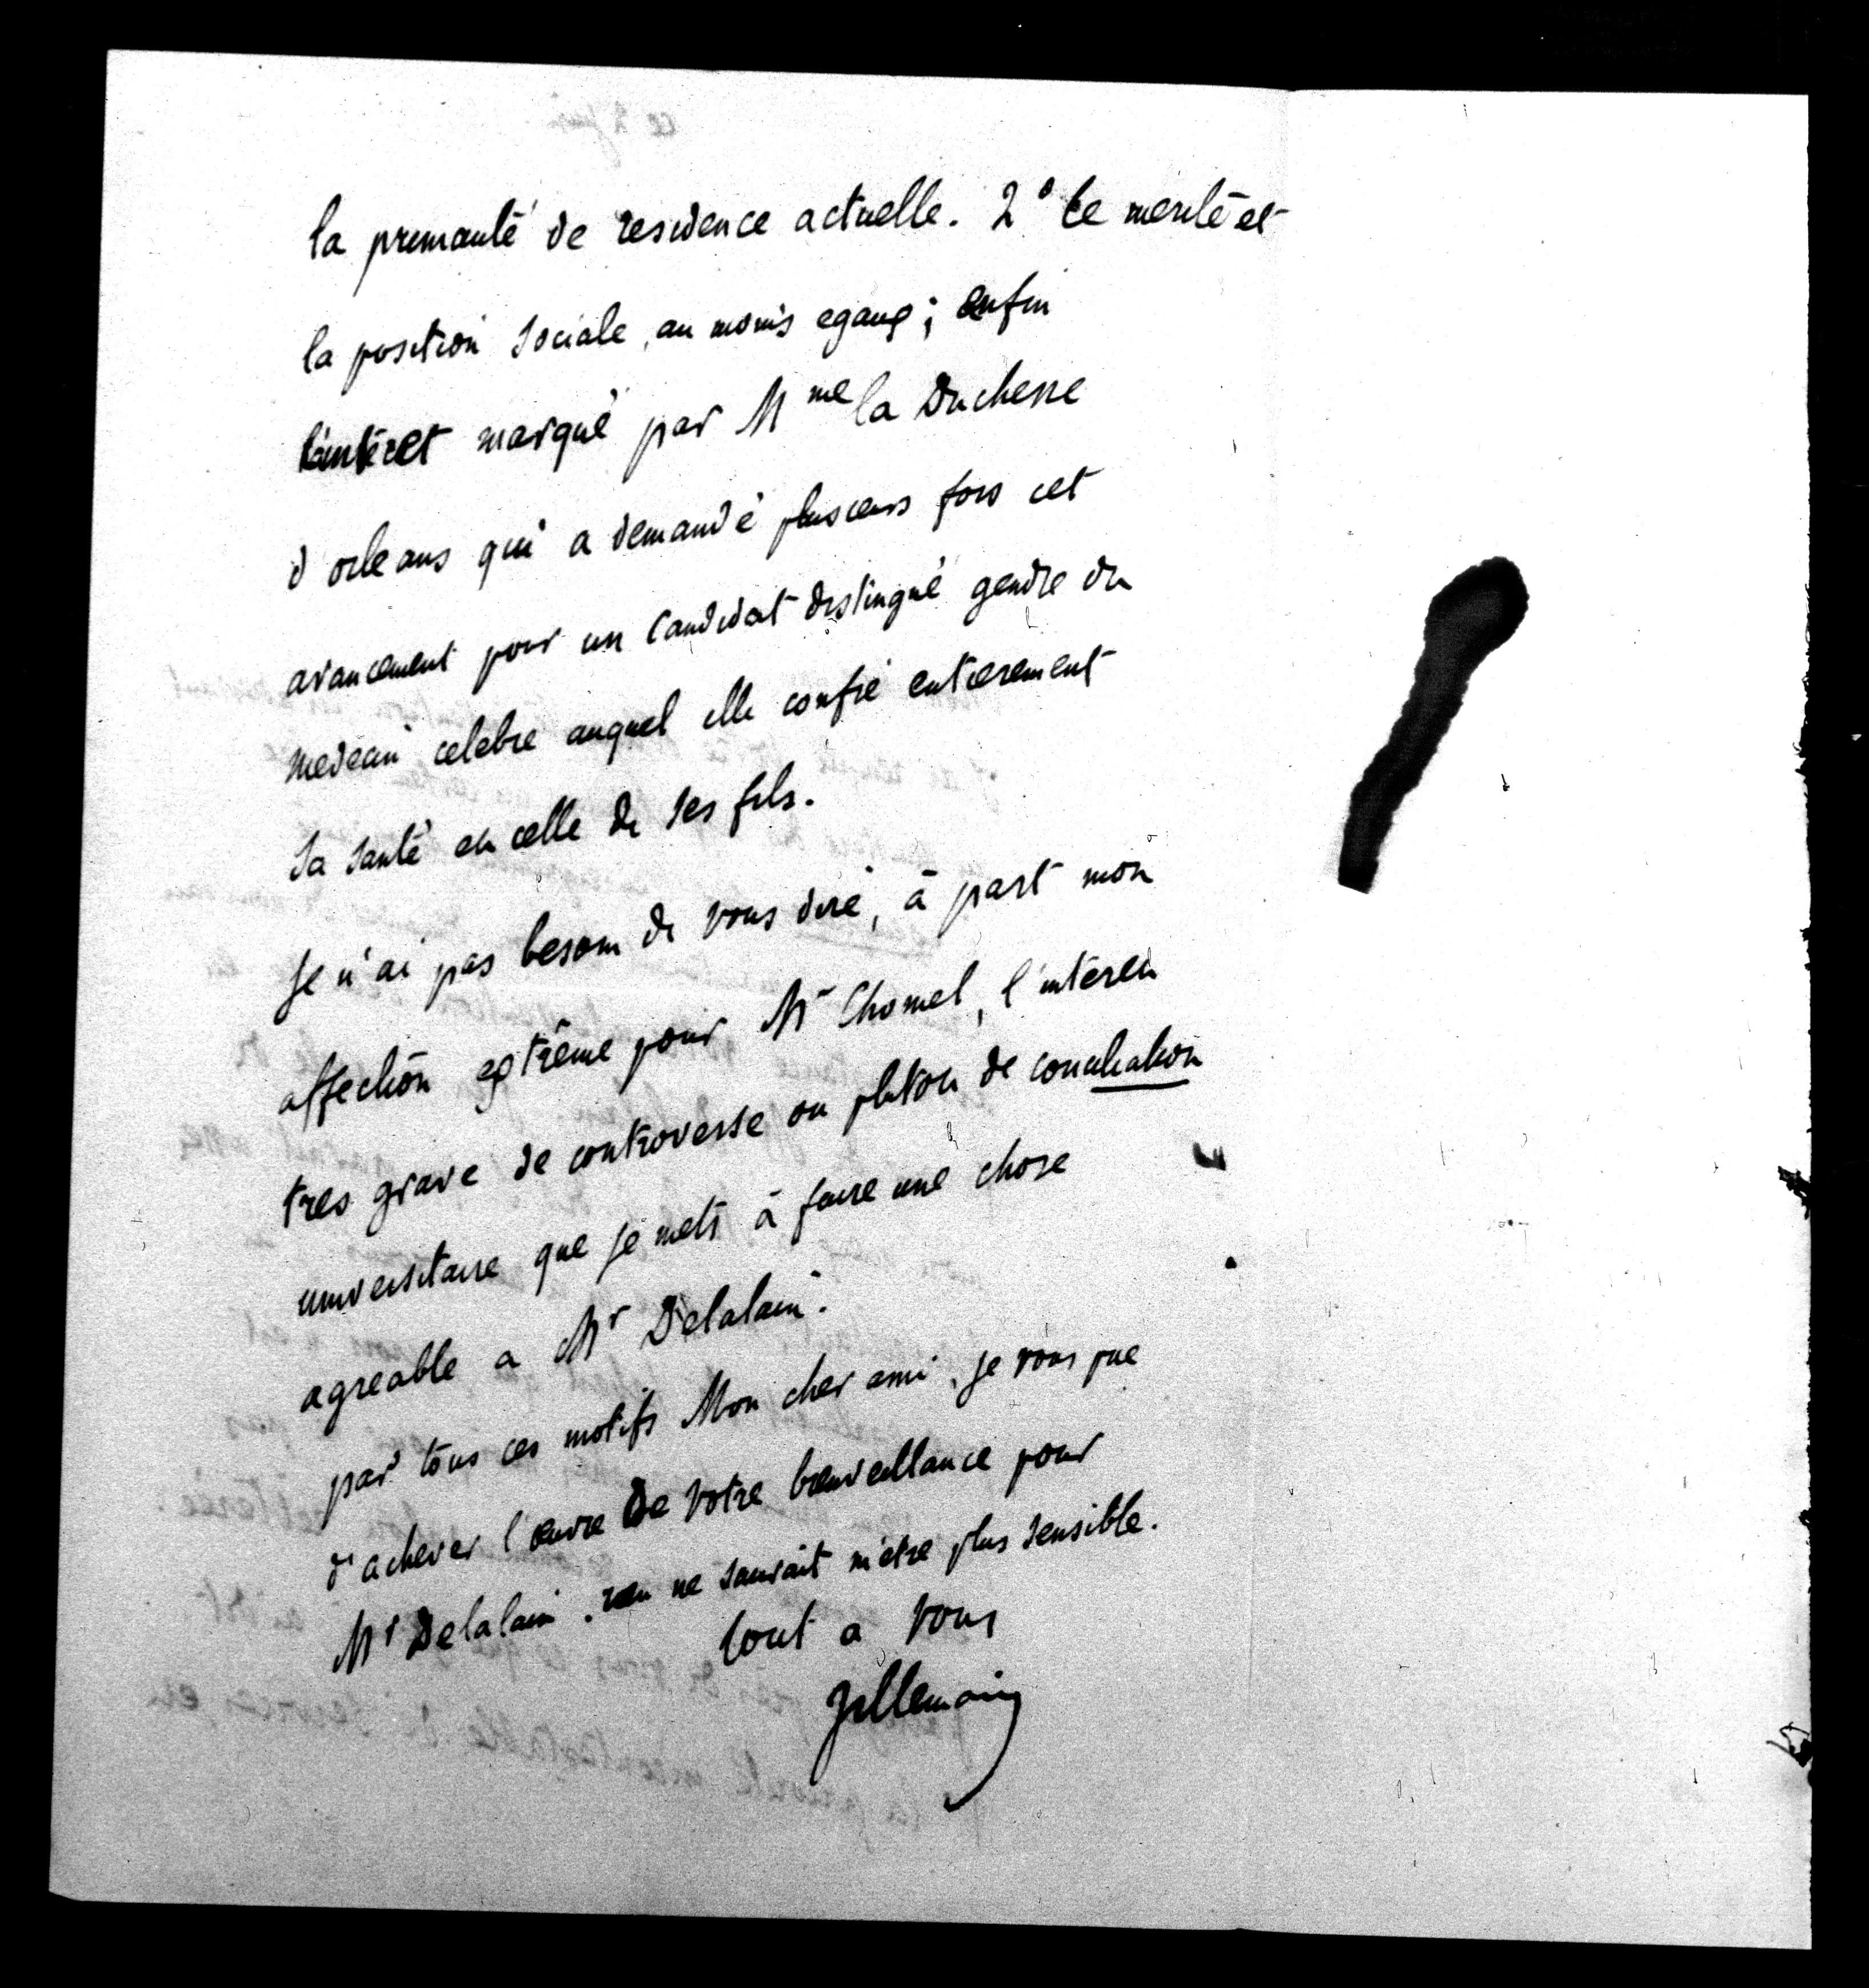 la primauté de residence actuelle. 2° le merite et
la position sociale, au moins egaux; enfin
l'intéret marqué par Mme la Duchesse
d'orleans qui a demandé plusieurs fois cet
avancement pour un candidat distingué gendre du
medecin celebre auquel elle confie entierement
sa santé et celle de ses fils.
Je n'ai pas besoin de vous dire, à part mon
affection extrême pour Mr Chomel, l'interet
tres grave de controverse ou plutot de conciliation
universitaire que je mets à faire une chose
agreable a Mr Delalain.
par tous ces motifs Mon cher ami, je vous prie
d'achever l'œuvre de votre bienveillance pour
Mr Delalain. rien ne saurait m'etre plus sensible.
tout a vous
Villemain